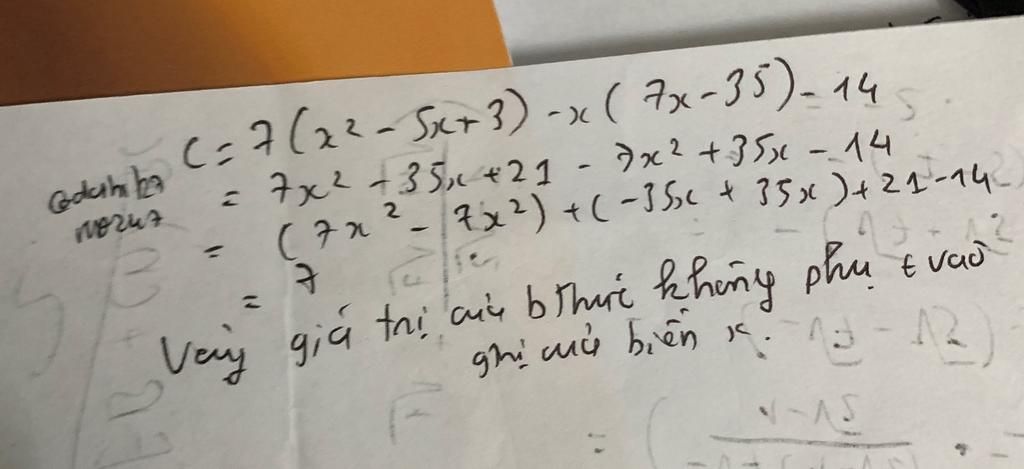 C = 7(x² - 5x + 3) - x(7x - 35) - 14
= 7x² + 35x + 21 - 7x² + 35x - 14
= (7x² - 7x²) + (-35x + 35x) + 21 - 14
= 7
Vậy giá trị của bthức không phụ t vào
ghị của biến x.